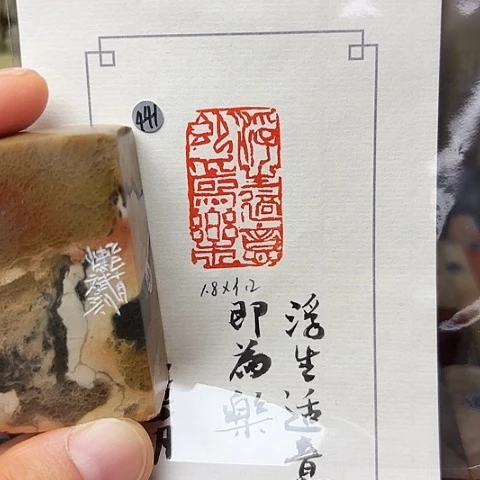 441
浮生適意
即為樂
1.8×4.2
浮生适意
即為樂